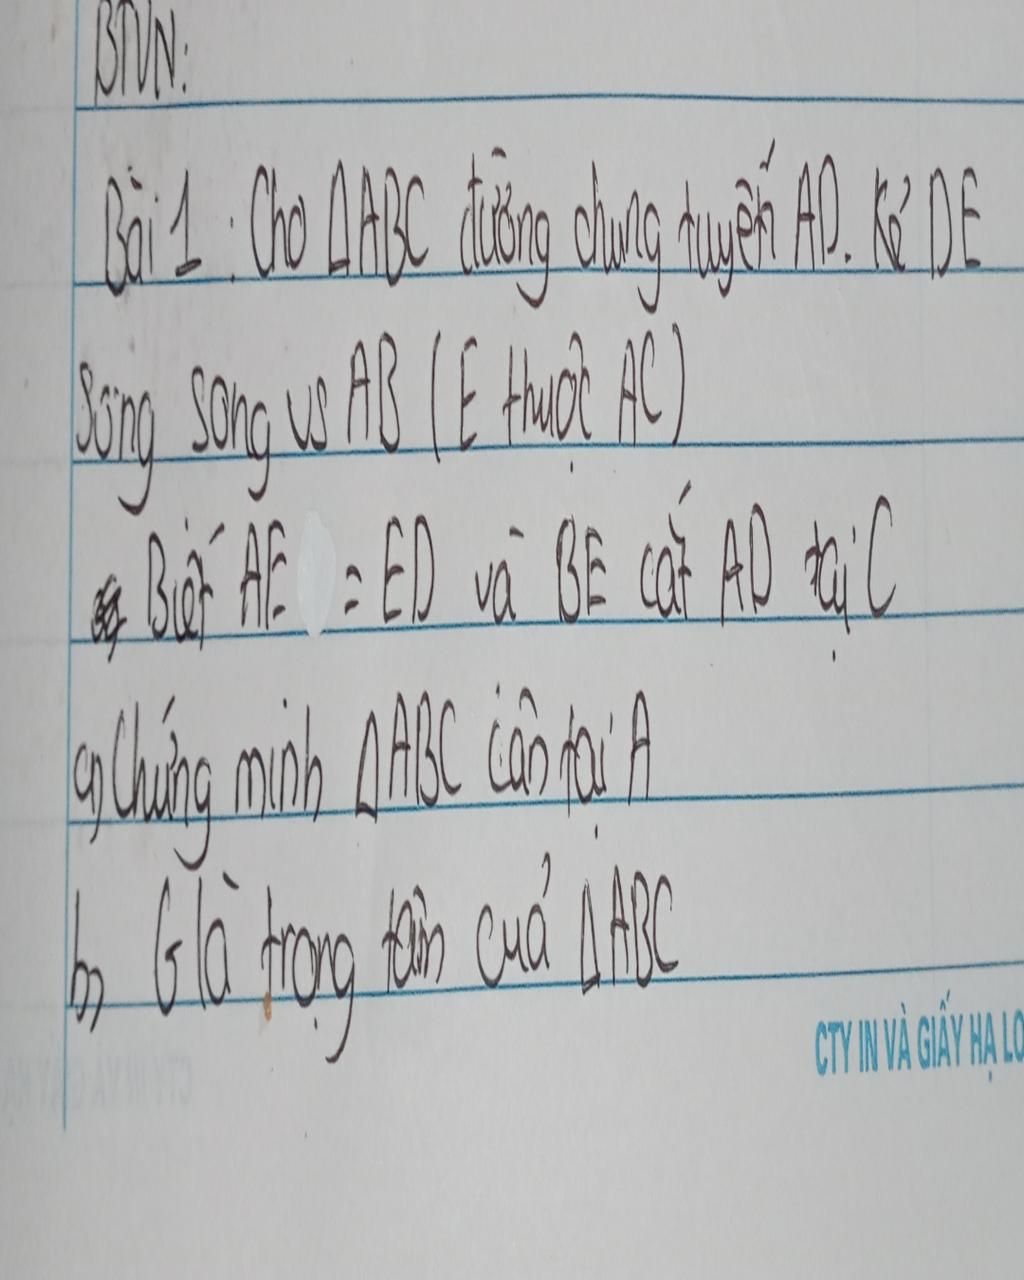 BTVN:
Bài 1: Cho ΔABC đường chung tuyến AD. Kẻ DE
Sông song vs AB (E thuộc AC)
Biết AE = ED và BE cắt AD tại C
a) Chứng minh ΔABC cân tại A
b) G là trọng tâm cuả ΔABC
CTY IN VÀ GIẤY HẠ LO